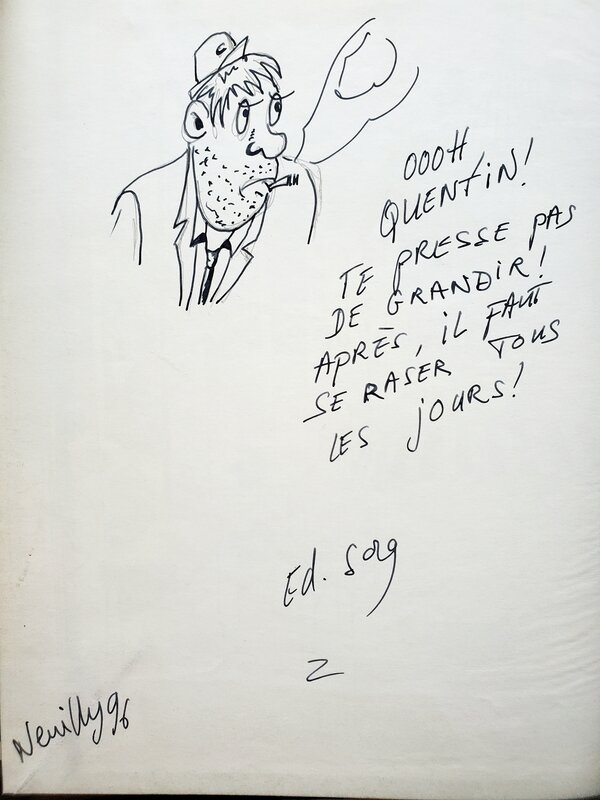 OOOH
QUENTIN!
TE PRESSE PAS
DE GRANDIR!
APRÈS, IL FAUT
SE RASER TOUS
LES JOURS!
Ed. Sorg
Neuilly 96